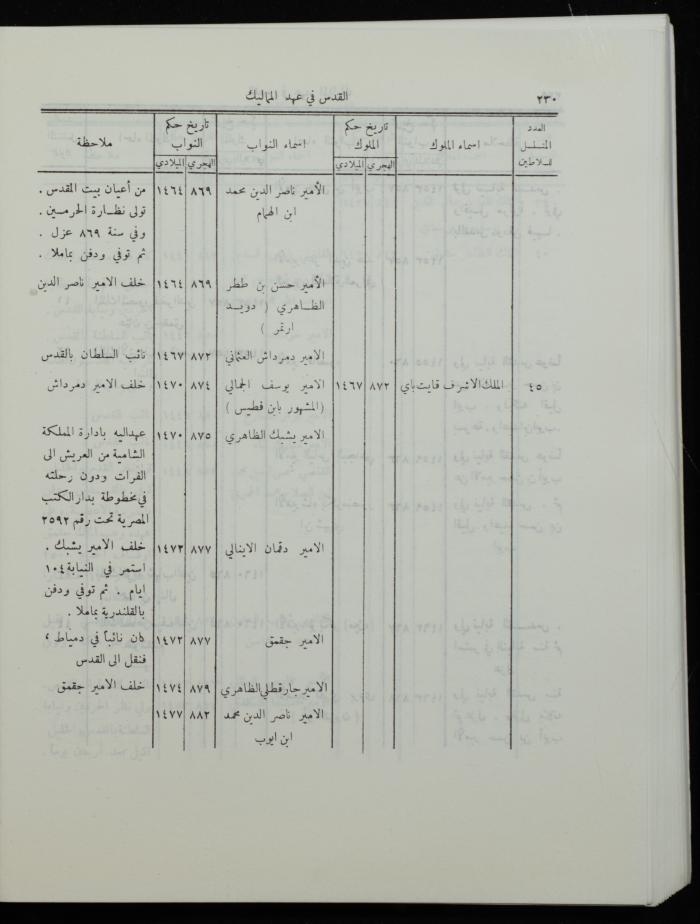 ٢٣٠
القدس في عهد المماليك
العدد المتسلسل للسلاطين | اسماء الملوك | تاريخ حكم الملوك | اسماء النواب | تاريخ حكم النواب | ملاحظة
الهجري | الميلادي | الهجري | الميلادي
الأمير ناصر الدين محمد | ٨٦٩ | ١٤٦٤ | من أعيان بيت المقدس .
ابن الهمام | تولى نظارة الحرمين .
وفي سنة ٨٦٩ عزل .
ثم توفي ودفن بماملا .
الأمير حسن بن ططر | ٨٦٩ | ١٤٦٤ | خلف الامير ناصر الدين
الظاهري ( دويد
ارتمر )
الامير دمرداش العثماني | ٨٧٢ | ١٤٦٧ | نائب السلطان بالقدس
٤٥ | الملك الاشرف قايت باي | ٨٧٢ | ١٤٦٧ | الامير يوسف الجمالي | ٨٧٤ | ١٤٧٠ | خلف الامير دمرداش
(المشهور بابن فطيس )
الامير يشبك الظاهري | ٨٧٥ | ١٤٧٠ | عهداليه بادارة المملكة
الشامية من العريش الى
الفرات ودون رحلته
في مخطوطة بدار الكتب
المصرية تحت رقم ٢٥٩٢
الامير دقمان الاينالي | ٨٧٧ | ١٤٧٢ | خلف الامير يشبك .
استمر في النيابة ١٠٤
ايام . ثم توفي ودفن
بالقلندرية بماملا .
الامير جقمق | ٨٧٧ | ١٤٧٢ | كان نائباً في دمياط ،
فنقل الى القدس
الامير جار قطلي الظاهري | ٨٧٩ | ١٤٧٤ | خلف الامير جقمق
الامير ناصر الدين محمد | ٨٨٢ | ١٤٧٧
ابن ايوب